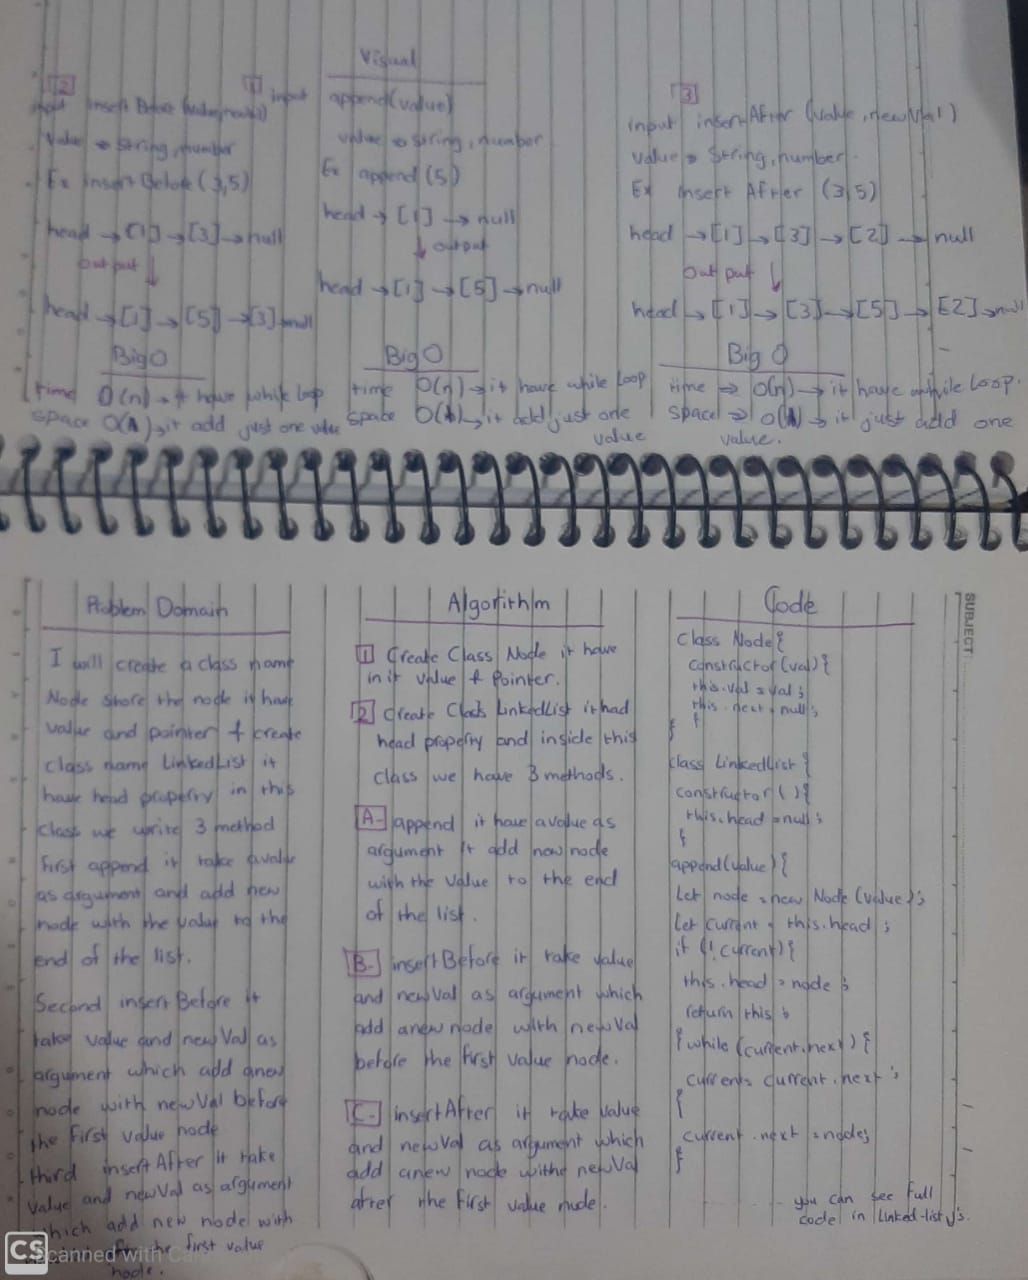 Visual
[2]
input insert Before (value, newVal)
value → string, number
Ex insert Before (3,5)
head → [1] → [3] → null
out put ↓
head → [1] → [5] → [3] → null
Big O
time O(n) → it have while loop
space O(1) → it add just one value
[1] input append(value)
value → string, number
Ex append (5)
head → [1] → null
↓ output
head → [1] → [5] → null
Big O
time O(n) → it have while loop
space O(1) → it add just one
value
[3]
input insert After (value, newVal)
value → String, number.
Ex insert After (3,5)
head → [1] → [3] → [2] → null
out put ↓
head → [1] → [3] → [5] → [2] → null
Big O
time ⇒ O(n) → it have while loop.
space ⇒ O(1) → it just add one
value.
Problem Domain
I will create a class name
Node store the node it have
value and pointer & create
class name LinkedList it
have head property in this
class we write 3 method
first append it take a value
as argument and add new
node with the value to the
end of the list.
Second insert Before it
take value and new Val as
argument which add anew
node with newVal before
the first value node
third insert After it take
value and newVal as argument
which add new node with
the first value
node.
Algorithm
[1] Create Class Node it have
in it value & Pointer.
[2] Create Class LinkedList it had
head property and inside this
class we have 3 methods.
[A-] append it have a value as
argument it add new node
with the value to the end
of the list.
[B-] insert Before it take value
and newVal as argument which
add anew node with newVal
before the first value node.
[C-] insert After it take value
and newVal as argument which
add anew node withe newVal
after the first value node.
Code
Class Node{
constructor(val){
this.val = val;
this.next = null;
}
}
class LinkedList {
constructor(){
this.head = null;
}
append(value){
Let node = new Node (value);
Let current = this.head;
if (!current){
this.head = node;
return this;
} while (current.next) {
current = current.next;
}
current.next = node;
}
you can see full
code in linked-list js.
SUBJECT:
CS
Scanned with